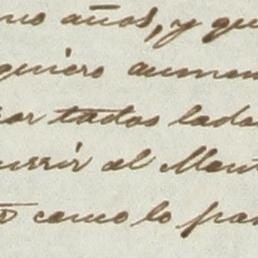 no años, y qu
quiero aumen
por todos lado
urrir al Mont
como lo pa